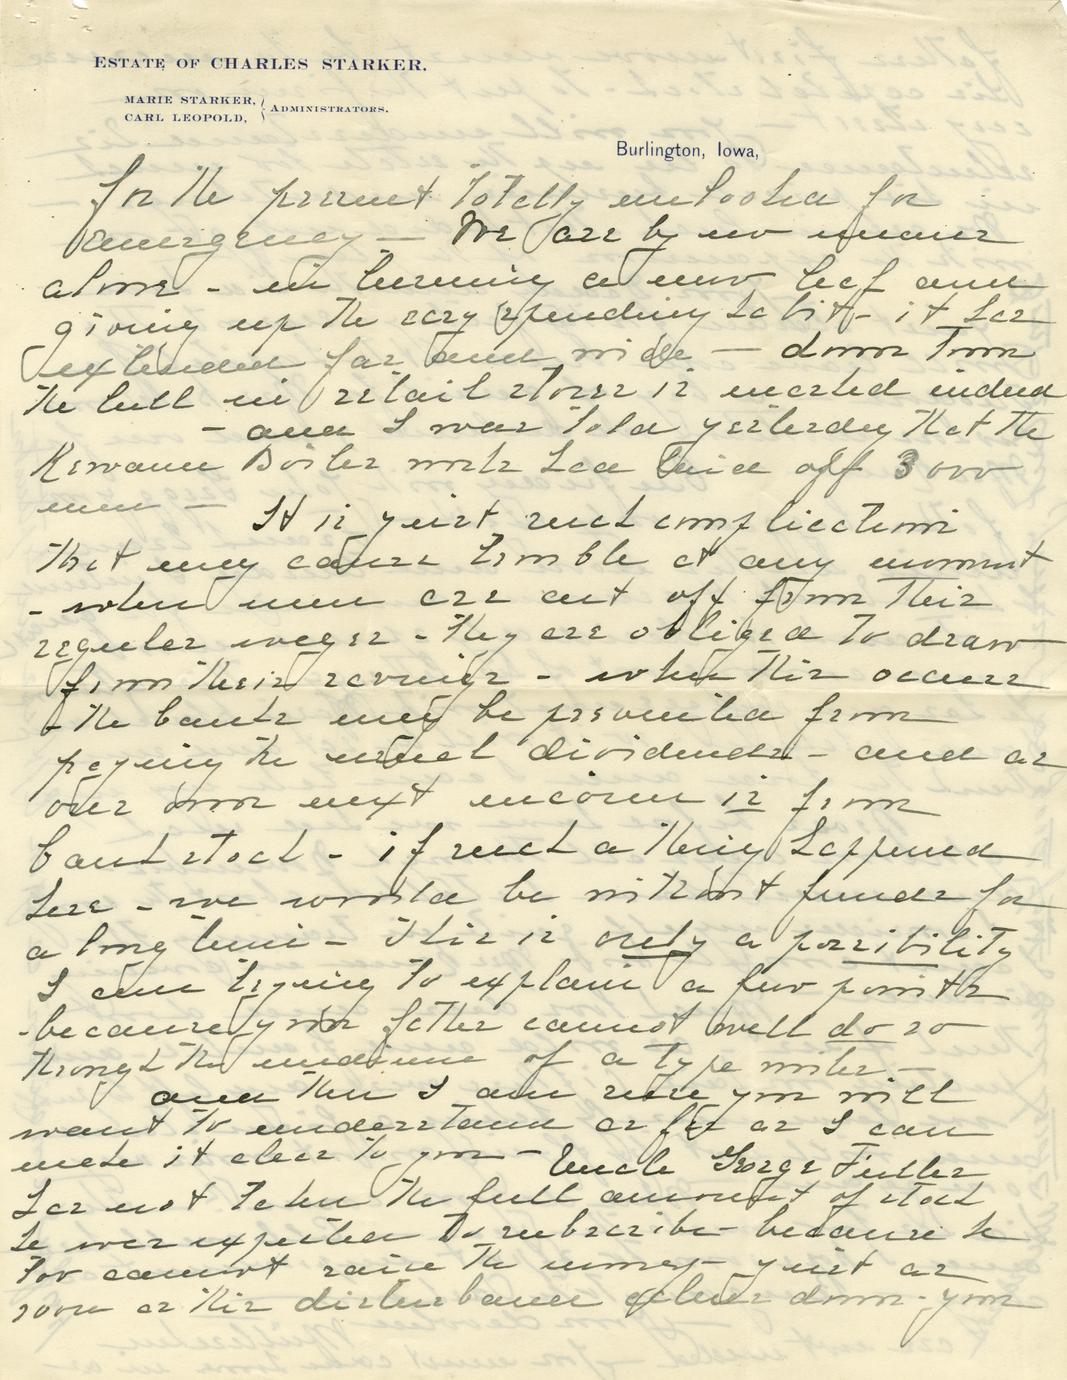 ESTATE OF CHARLES STARKER.
MARIE STARKER,
CARL LEOPOLD, } ADMINISTRATORS.
Burlington, Iowa,
for the present totally unlooked for
emergency — We are by no means
alone - in turning a new leaf and
giving up the easy spending habit - it has
extended far and wide — down town
the lull in retail stores is marked indeed
- and I was told yesterday that the
Kewanee Boiler works had laid off 3000
men — It is just such complications
that may cause trouble at any moment
- when men are cut off from their
regular wages - they are obliged to draw
from their savings - when this occurs
- the banks may be prevented from
paying the usual dividends - and as
our own next income is from
bank stock - if such a thing happened
here - we would be without funds for
a long time - This is only a possibility
I am trying to explain a few points
- because your father cannot well do so
through the medium of a type writer -
and then I am sure you will
want to understand as far as I can
make it clear to you - Uncle George
has not taken the full amount of stock
he was expected to subscribe - because he
too cannot raise the money - just as
soon as this disturbance down - your